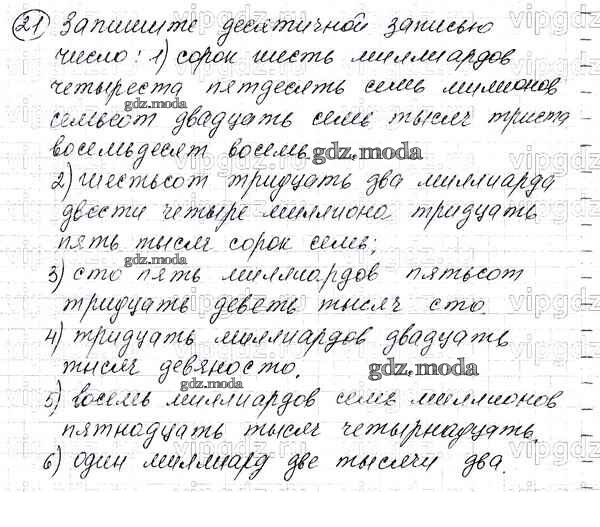 21 Запишите десятичной записью
число: 1) сорок шесть миллиардов
четыреста пятдесять семь милионов
gdz.moda
семьсот двадцать семь тысяч триста
восемьдесят восемь. gdz.moda
2) шестьсот тридцать два миллиарда
двести четыре миллиона тридцать
пять тысяч сорок семь;
gdz.moda
3) сто пять миллиардов пятьсот
тридцать деветь тысяч сто.
4) тридцать миллиардов двадцать
тысяч девяносто. gdz.moda
gdz.moda
5) восемь миллиардов семь миллионов
пятнадцать тысяч четырнадцать.
6) один миллиард две тысячи два.